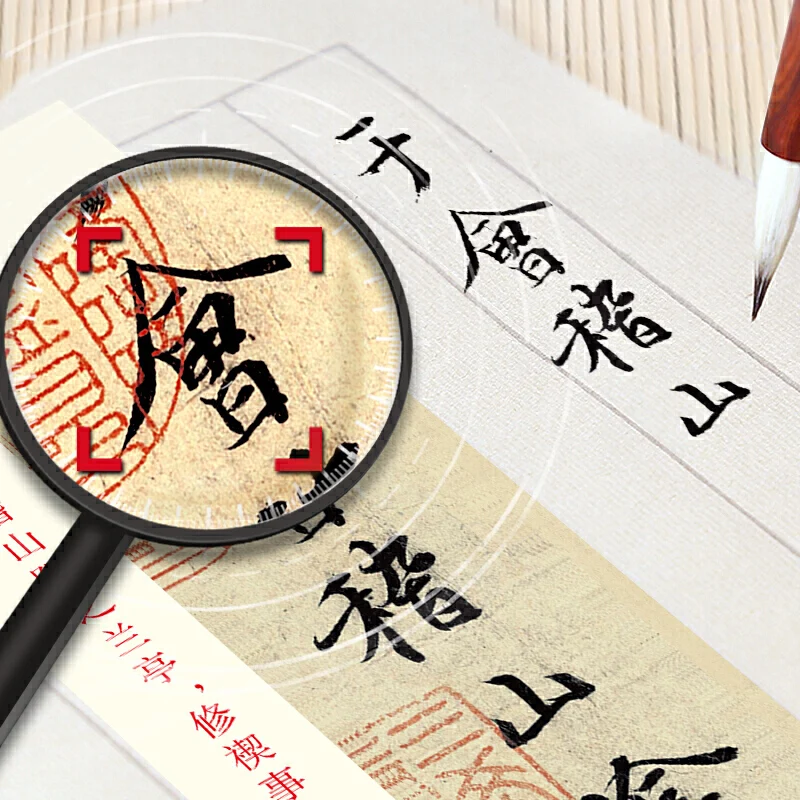 于會稽山
會
稽山
山 兰亭，修禊事